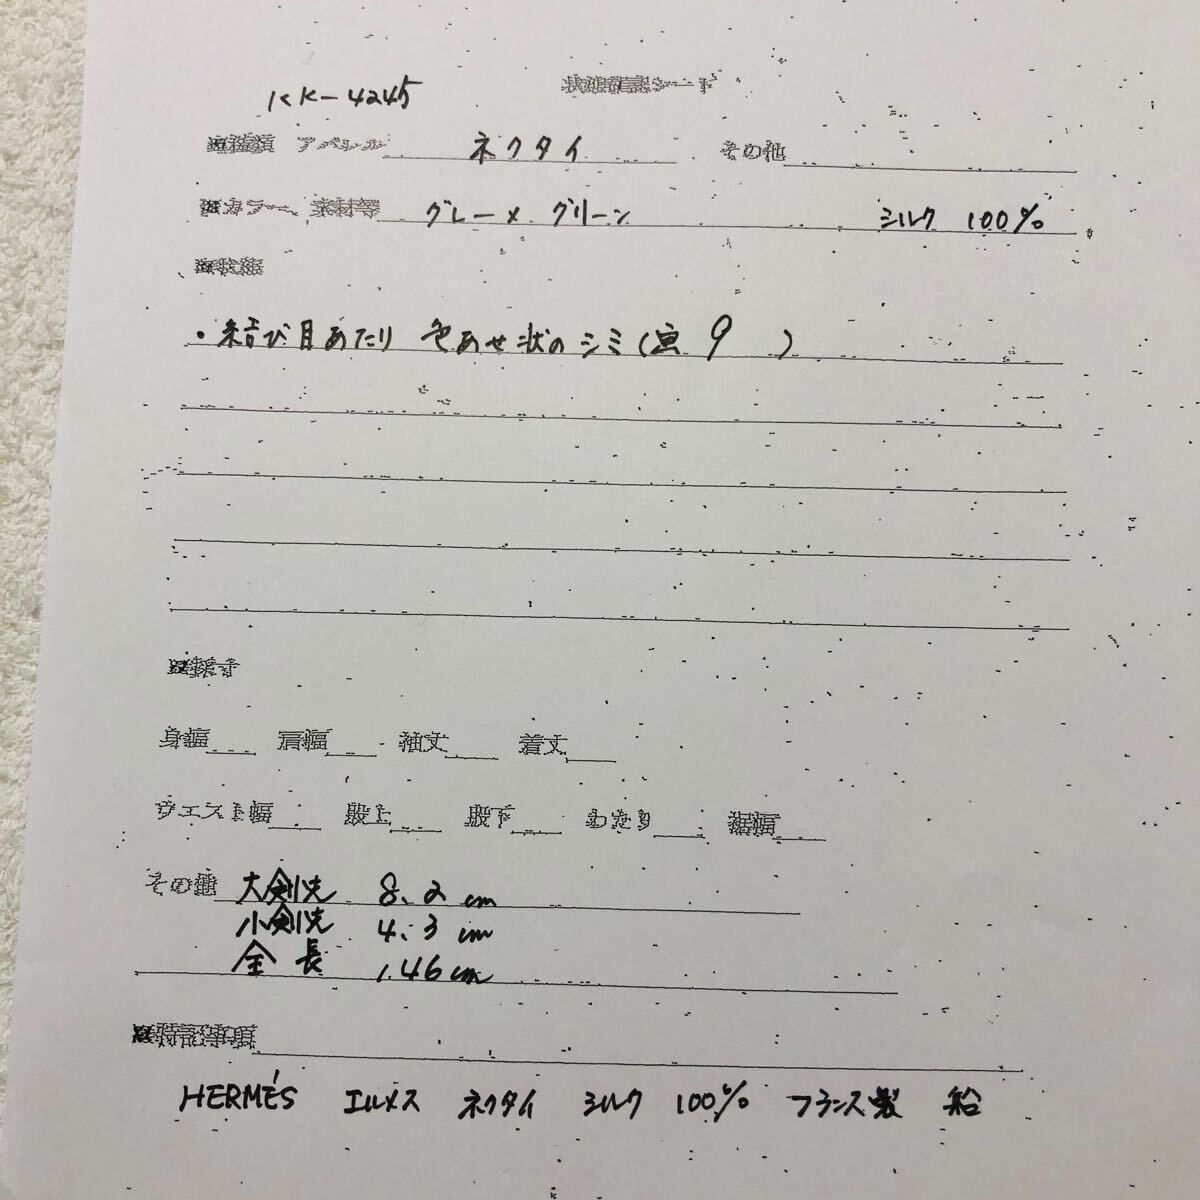 状態確認シート
KK-4245
■種類 アパレル ネクタイ その他
■カラー、素材等 グレー × グリーン シルク 100%
■状態
・結び目あたり 色あせ状のシミ(画 9 )
■採寸
身幅 肩幅 袖丈 着丈
ウエスト幅 股上 股下 わたり 裾幅
その他 大剣先 8.2 cm
小剣先 4.3 cm
全長 146 cm
■特記事項
HERMÈS エルメス ネクタイ シルク 100% フランス製 船